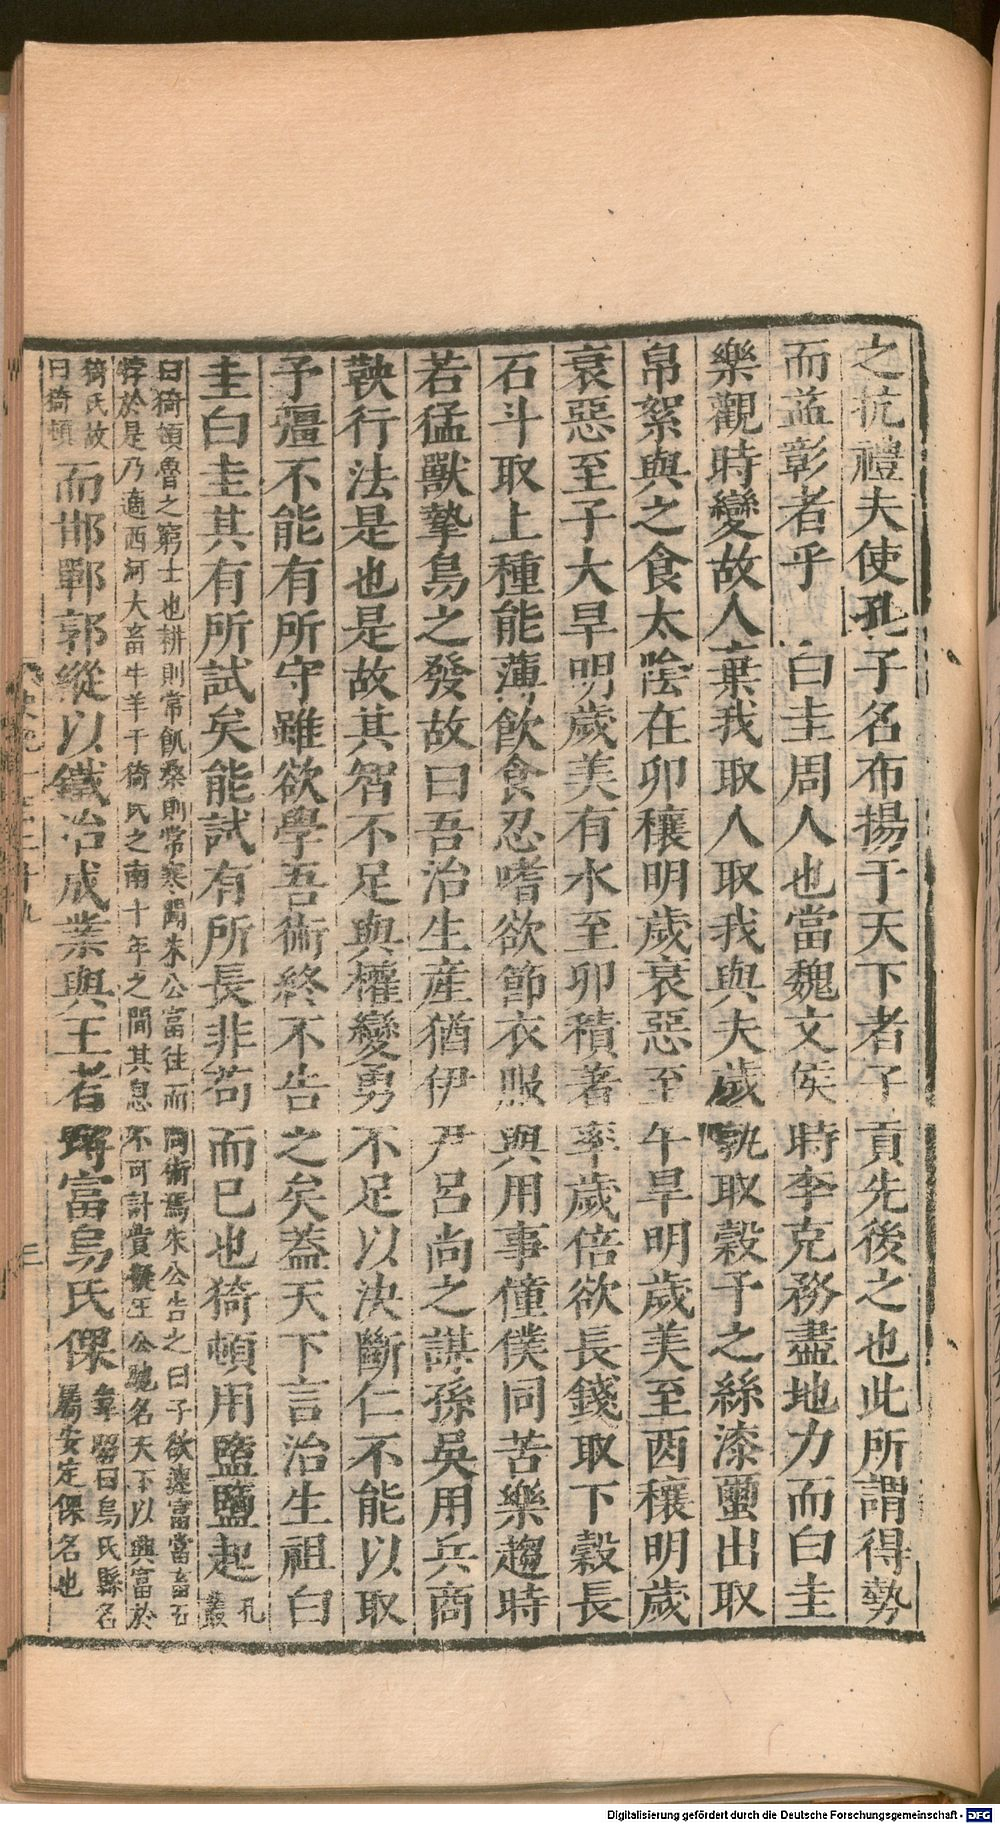 之抗禮夫使孔子名布揚于天下者子貢先後之也此所謂得勢
而益彰者乎　白圭周人也當魏文侯時李克務盡地力而白圭
樂觀時變故人棄我取人取我與夫歲孰取穀予之絲漆璽出取
帛絮與之食太陰在卯穰明歲衰惡至午旱明歲美至酉穰明歲
衰惡至子大旱明歲美有水至卯積著率歲倍欲長錢取下穀長
石斗取上種能薄飲食忍嗜欲節衣服與用事僮僕同苦樂趨時
若猛獸摯鳥之發故曰吾治生產猶伊尹呂尚之謀孫吳用兵商
鞅行法是也是故其智不足與權變勇不足以決斷仁不能以取
予彊不能有所守雖欲學吾術終不告之矣蓋天下言治生祖白
圭白圭其有所試矣能試有所長非苟而已也猗頓用盬鹽起孔叢
曰猗頓魯之窮士也耕則常飢桑則常寒聞朱公富往而問術焉朱公告之曰子欲速富當畜五
牸於是乃適西河大畜牛羊于猗氏之南十年之間其息不可計貲擬王公馳名天下以興富於
猗氏故曰猗頓而邯鄲郭縱以鐵冶成業與王者埒富烏氏倮韋昭曰烏氏縣名屬安定倮名也
三
Digitalisierung gefördert durch die Deutsche Forschungsgemeinschaft - DFG